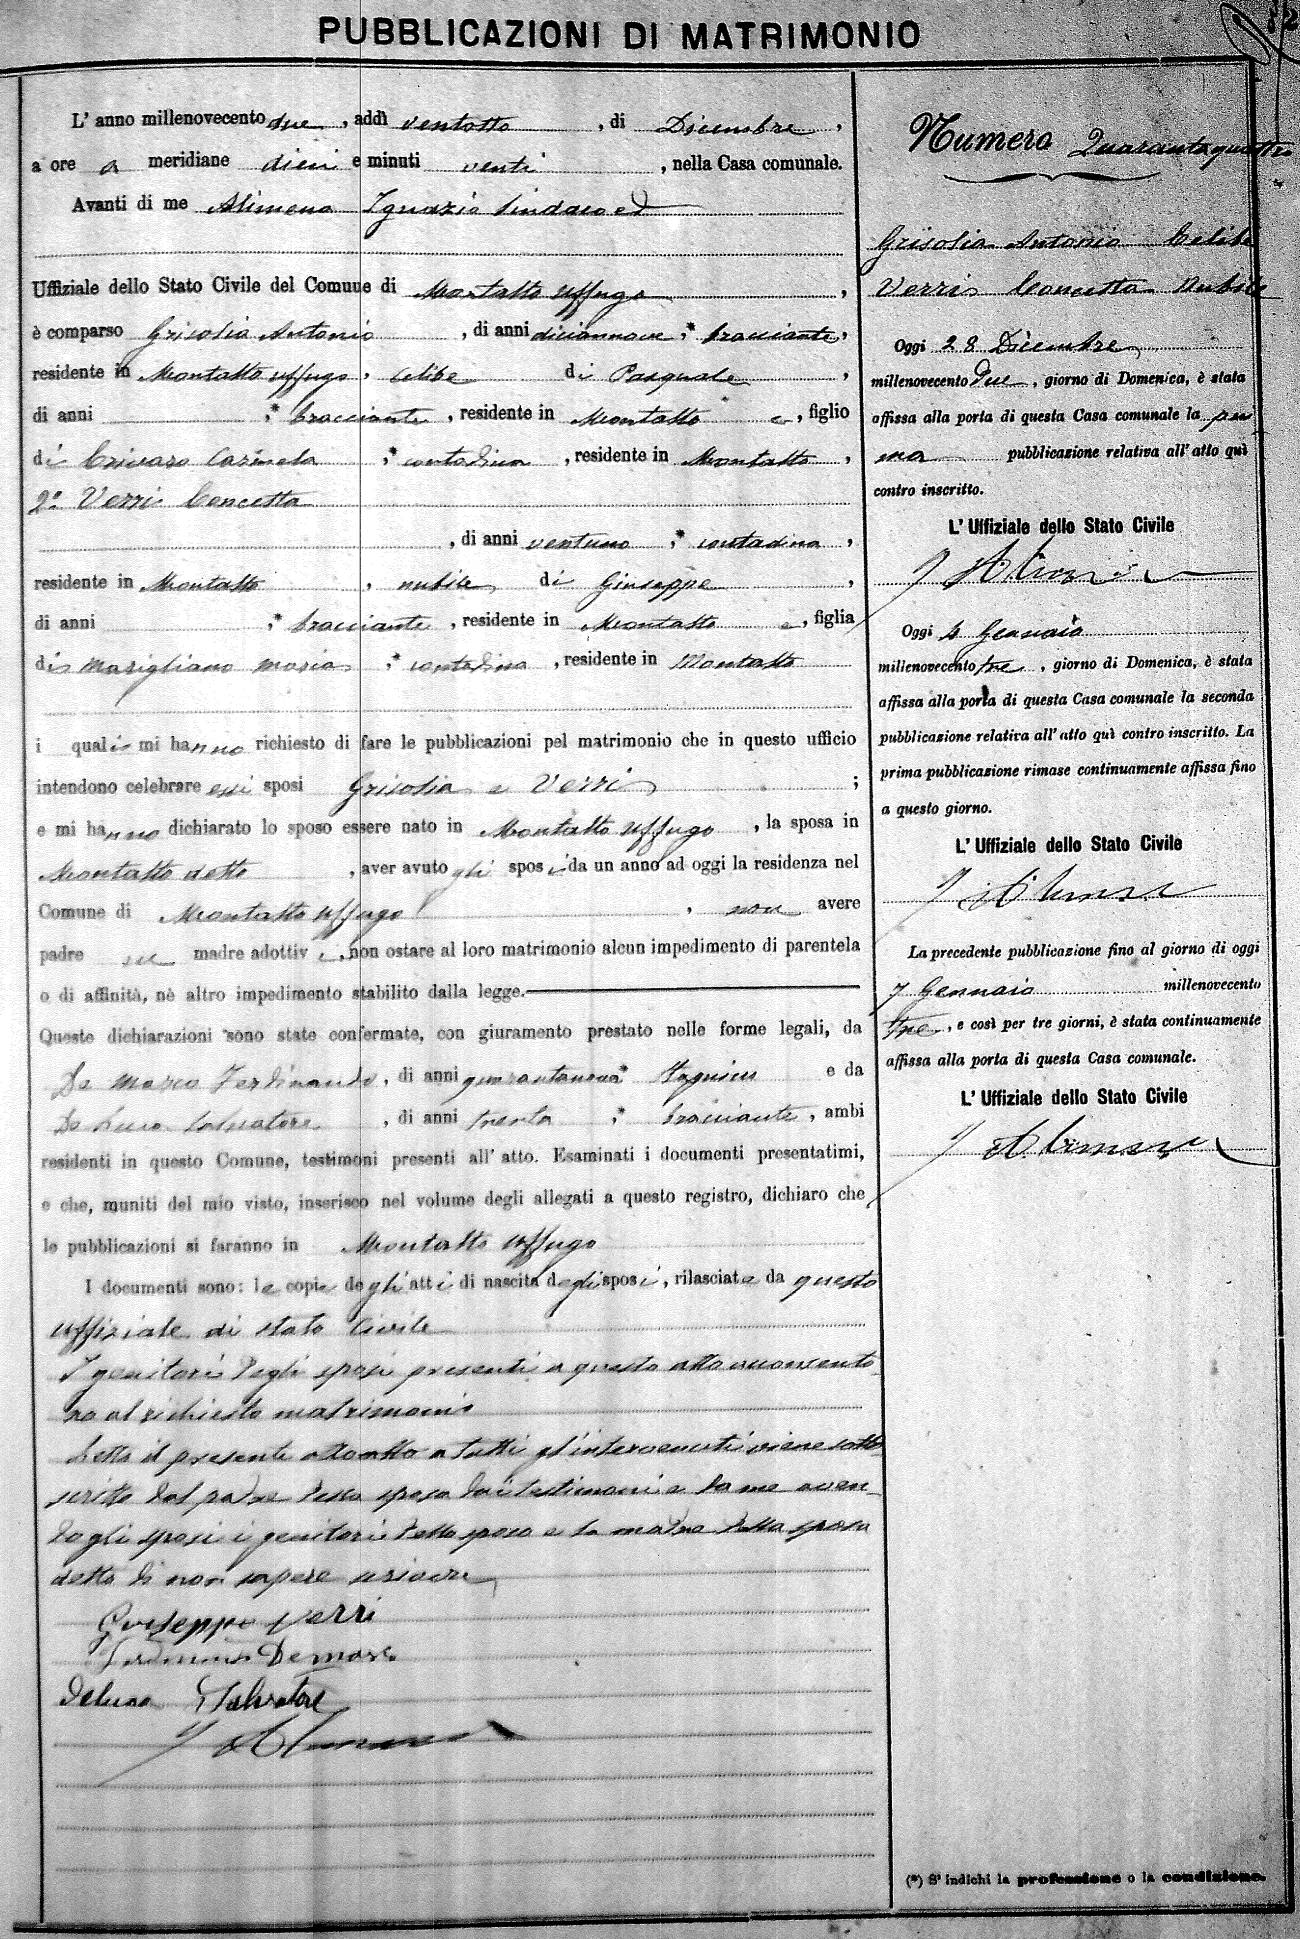 PUBBLICAZIONI DI MATRIMONIO
L' anno millenovecento due, addì ventotto, di Dicembre,
a ore a meridiane dieci e minuti venti, nella Casa comunale.
Avanti di me Alimena Ignazio Sindaco ed
Uffiziale dello Stato Civile del Comune di Montalto Uffugo,
è comparso Grisolia Antonio, di anni diciannove, * bracciante,
residente in Montalto Uffugo, celibe di Pasquale,
di anni , * bracciante, residente in Montalto e, figlio
di Crivaro Carmela, * contadina, residente in Montalto,
2° Verri Concetta
, di anni ventuno, * contadina,
residente in Montalto, nubile di Giuseppe,
di anni , * bracciante, residente in Montalto e, figlia
di Marigliano Maria, * contadina, residente in Montalto
i quali mi hanno richiesto di fare le pubblicazioni pel matrimonio che in questo ufficio
intendono celebrare essi sposi Grisolia e Verri ;
e mi hanno dichiarato lo sposo essere nato in Montalto Uffugo, la sposa in
Montalto detto, aver avuto gli sposi da un anno ad oggi la residenza nel
Comune di Montalto Uffugo, non avere
padre nè madre adottivi, non ostare al loro matrimonio alcun impedimento di parentela
o di affinità, nè altro impedimento stabilito dalla legge.
Queste dichiarazioni sono state confermate, con giuramento prestato nelle forme legali, da
De Marco Ferdinando, di anni quarantanove * e da
De Luca Salvatore, di anni trenta, * bracciante, ambi
residenti in questo Comune, testimoni presenti all' atto. Esaminati i documenti presentatimi,
e che, muniti del mio visto, inserisco nel volume degli allegati a questo registro, dichiaro che
le pubblicazioni si faranno in Montalto Uffugo
I documenti sono: le copie degli atti di nascita degli sposi, rilasciate da questo
uffiziale di stato Civile
I genitori degli sposi presenti a questo atto acconsento
no al richiesto matrimonio
Letto il presente atto a tutti gl'intervenuti viene sotto
scritto dal padre della sposa dai testimoni e da me aven
do gli sposi i genitori dello sposo e la madre della sposa
detto di non sapere scrivere
Giuseppe Verri
Ferdinando Demarco
Deluca Salvatore
I Alimena
Numero Quarantaquattro
Grisolia Antonio Celibe
Verri Concetta Nubile
Oggi 28 Dicembre
millenovecento due, giorno di Domenica, è stata
affissa alla porta di questa Casa comunale la pri
ma pubblicazione relativa all' atto quì
contro inscritto.
L' Uffiziale dello Stato Civile
I Alimena
Oggi 4 Gennaio
millenovecento tre, giorno di Domenica, è stata
affissa alla porta di questa Casa comunale la seconda
pubblicazione relativa all' atto quì contro inscritto. La
prima pubblicazione rimase continuamente affissa fino
a questo giorno.
L' Uffiziale dello Stato Civile
I Alimena
La precedente pubblicazione fino al giorno di oggi
7 Gennaio millenovecento
tre, e così per tre giorni, è stata continuamente
affissa alla porta di questa Casa comunale.
L' Uffiziale dello Stato Civile
I Alimena
(*) S' indichi la professione o la condizione.